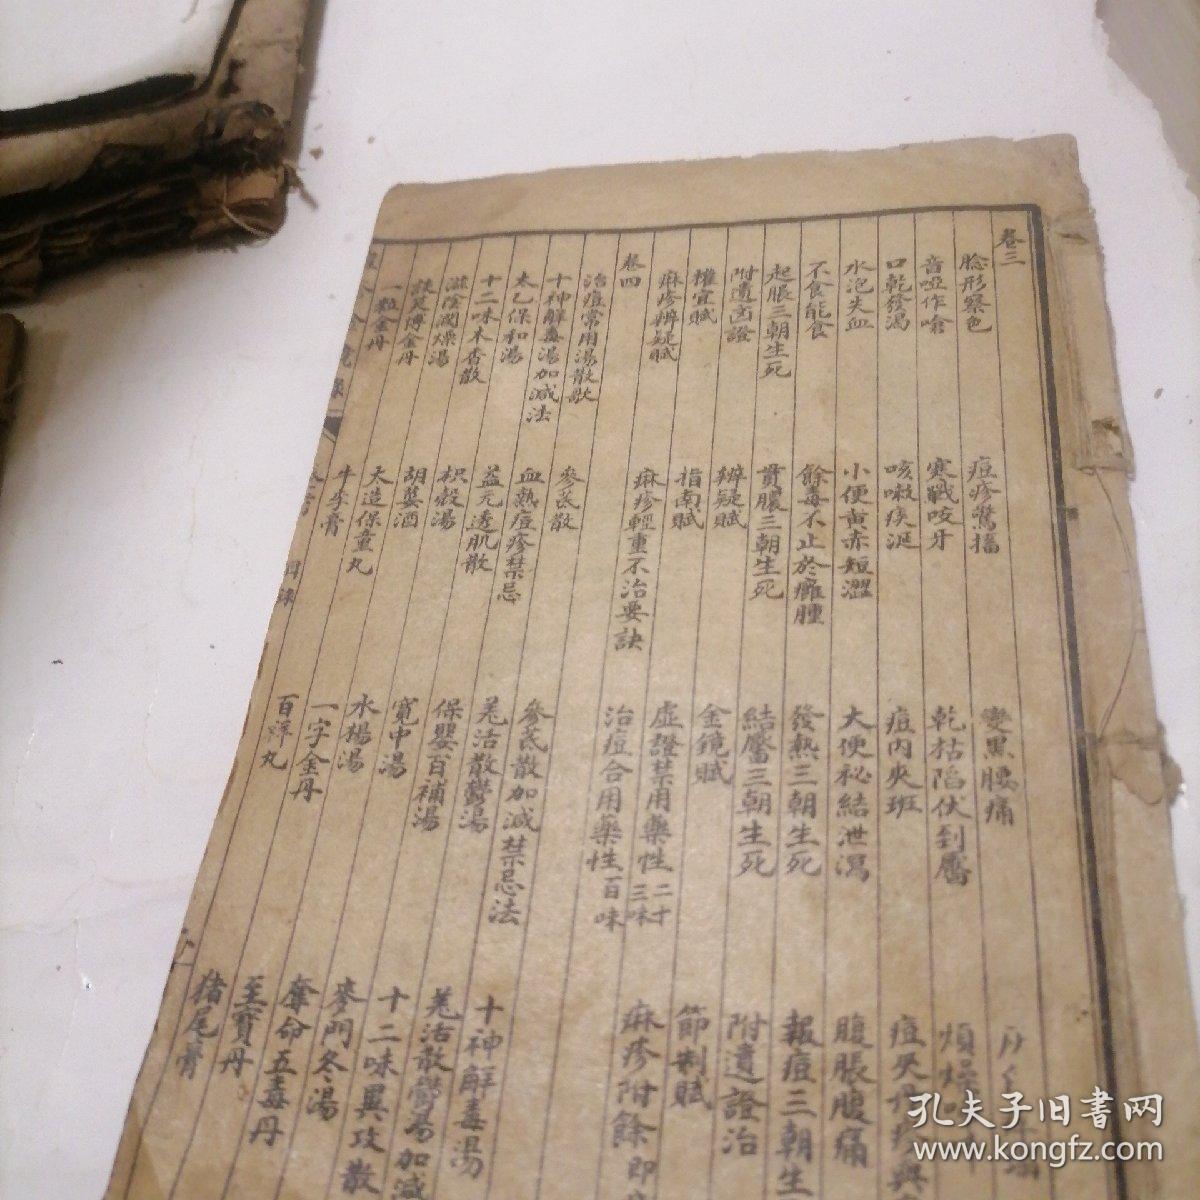 卷三
脸形察色 痘疹驚搐 變黑腰痛
音啞作嗆 寒戰咬牙 乾枯陷伏到靨 煩燥
口乾發渴 咳嗽痰涎 痘內夾斑 痘夾丹疹與
水泡失血 小便黄赤短澀 大便祕結泄瀉 腹脹腹痛
不食能食 餘毒不止於癰腫 發熱三朝生死 報痘三朝生
起脹三朝生死 貫膿三朝生死 結靨三朝生死 附遺證治
附遺凶證 辨疑賦 金鏡賦 節制賦
權宜賦 指南賦
麻疹辨疑賦 麻疹輕重不治要訣 虛證禁用藥性二十三味 麻疹附餘即
卷四 治痘合用藥性百味
治痘常用湯散歌 參芪散 參芪散加減禁忌法 十神解毒湯
十神解毒湯加減法 血熱痘疹禁忌 羗活散鬱湯 羗活散鬱湯加減
太乙保和湯 益元透肌散 保嬰百補湯 十二味異攻散
十二味木香散 枳殼湯 寬中湯 麥門冬湯
滋陰潤燥湯 胡荽酒 水楊湯 奪命五毒丹
談笑博金丹 天造保童丸 一字金丹 至寶丹
一粒金丹 牛李膏 百祥丸 猪尾膏
孔夫子旧書网
www.kongfz.com